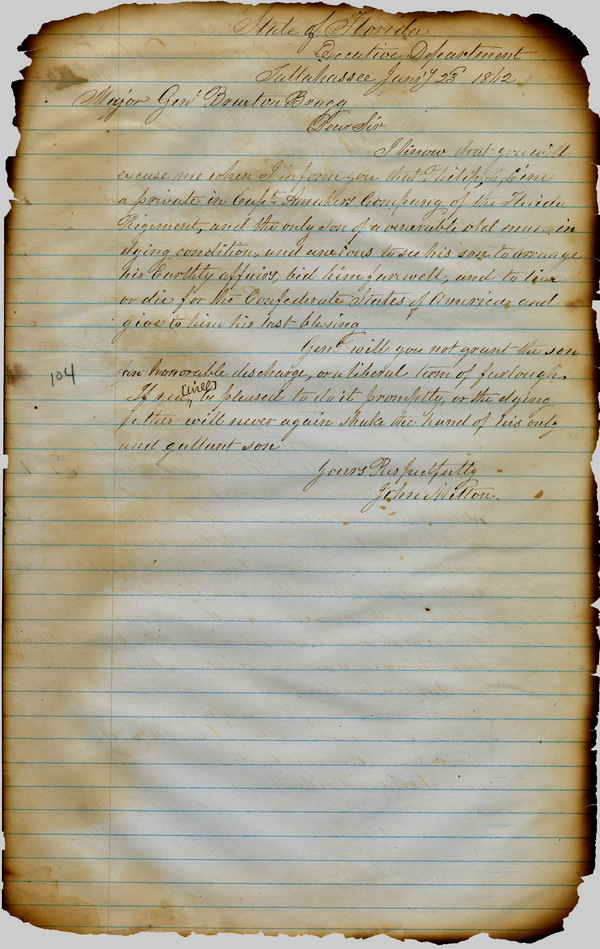 State of Florida
Executive Department
Tallahassee Jany 23 1862
Major Genl Braxton Bragg
Dear Sir
I know that you will
excuse me when I inform you that Philip
a private in Captn Amakers Company of the Florida
Regiment, and the only son of a venerable old man in
dying condition, and anxious to see his son to arrange
his Earthly affairs, bid him farewell, and to live
or die for the Confederate States of America and
give to him his last blessing
Genl will you not grant the son
an honorable discharge, or a liberal term of furlough.
104
If [will] be pleased to do it promptly, or the dying
father will never again shake the hand of his only
and gallant son
Yours Respectfully
John Milton.